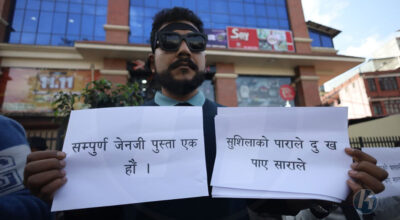 Soy
11.11
सम्पुर्ण जेनजी पुस्ता एक
हौं ।
सुशिलाको पाराले दु ख
पाए साराले